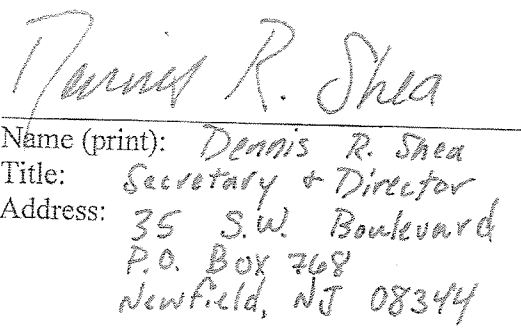 Dennis R. Shea
Name (print): Dennis R. Shea
Title: Secretary + Director
Address: 35 S.W. Boulevard
P.O. Box 768
Newfield, NJ 08344